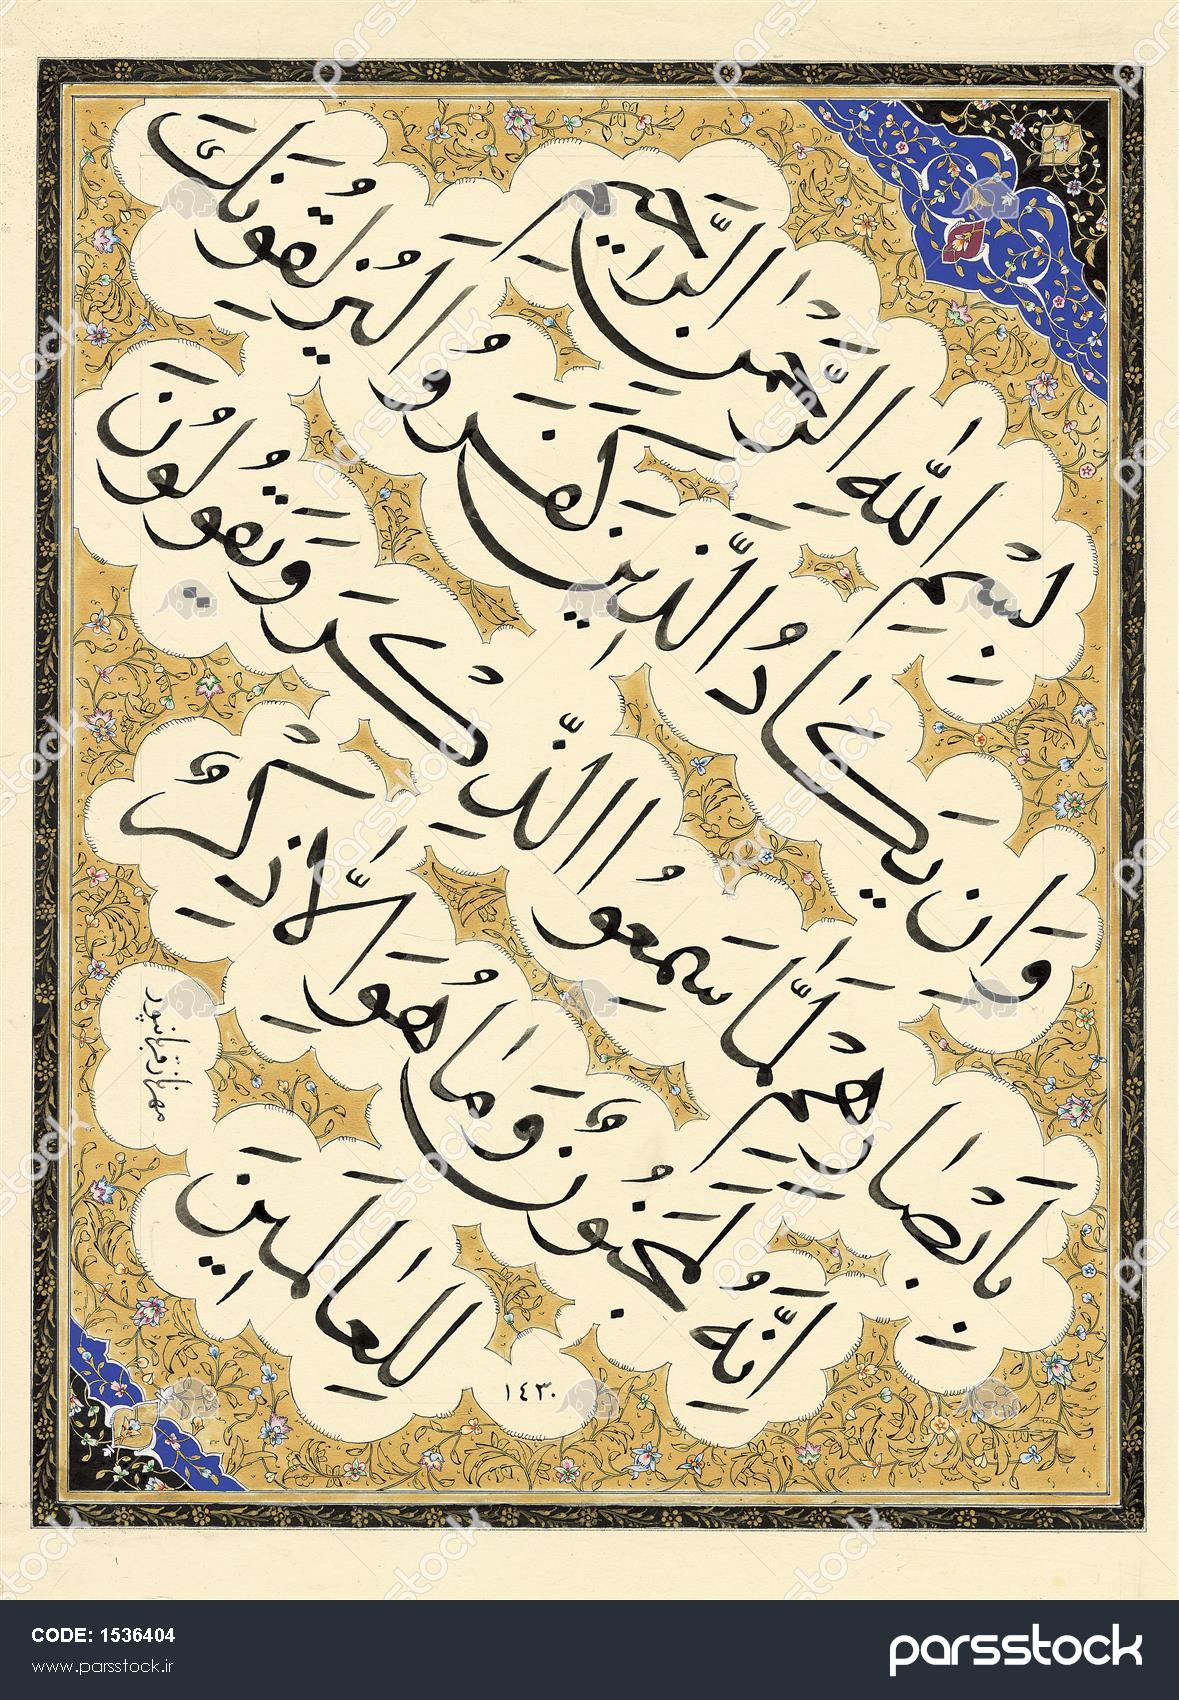 بِسْمِ اللَّهِ الرَّحْمَنِ الرَّحِيمِ
وَإِن يَكَادُ الَّذِينَ كَفَرُوا لَيُزْلِقُونَكَ
بِأَبْصَارِهِمْ لَمَّا سَمِعُوا الذِّكْرَ وَيَقُولُونَ
إِنَّهُ لَمَجْنُونٌ وَمَا هُوَ إِلَّا ذِكْرٌ
لِلْعَالَمِينَ
مهناز قربانپور
١٤٣٠
CODE: 1536404
www.parsstock.ir
parsstock